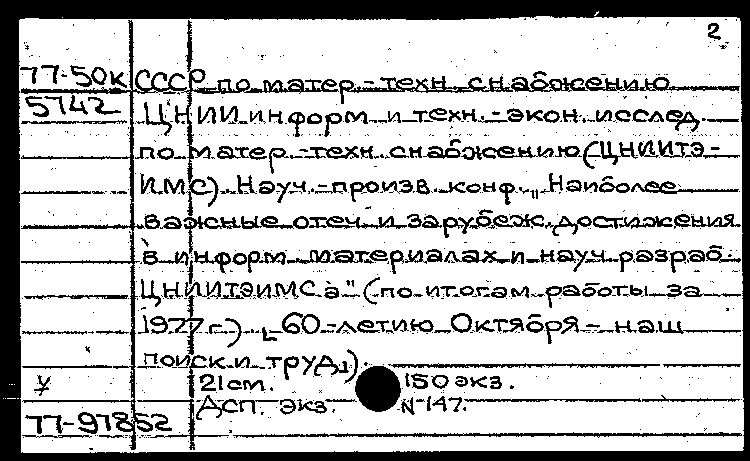 2
77-50к СССР по матер.-техн. снабжению.
5142 ЦНИИ информ и техн.-экон. исслед.
по матер.-техн. снабжению (ЦНИИТЭ-
ИМС). Науч.-произв. конф. „Наиболее
важные отеч. и зарубеж. достижения
в информ. материалах и науч. разраб.
ЦНИИТЭИМС а" (по итогам работы за
1977 г.) [60-летию Октября - наш
поиск и труд]).
21 см. 150 экз.
у
Дсп. экз. № 147.
77-97852